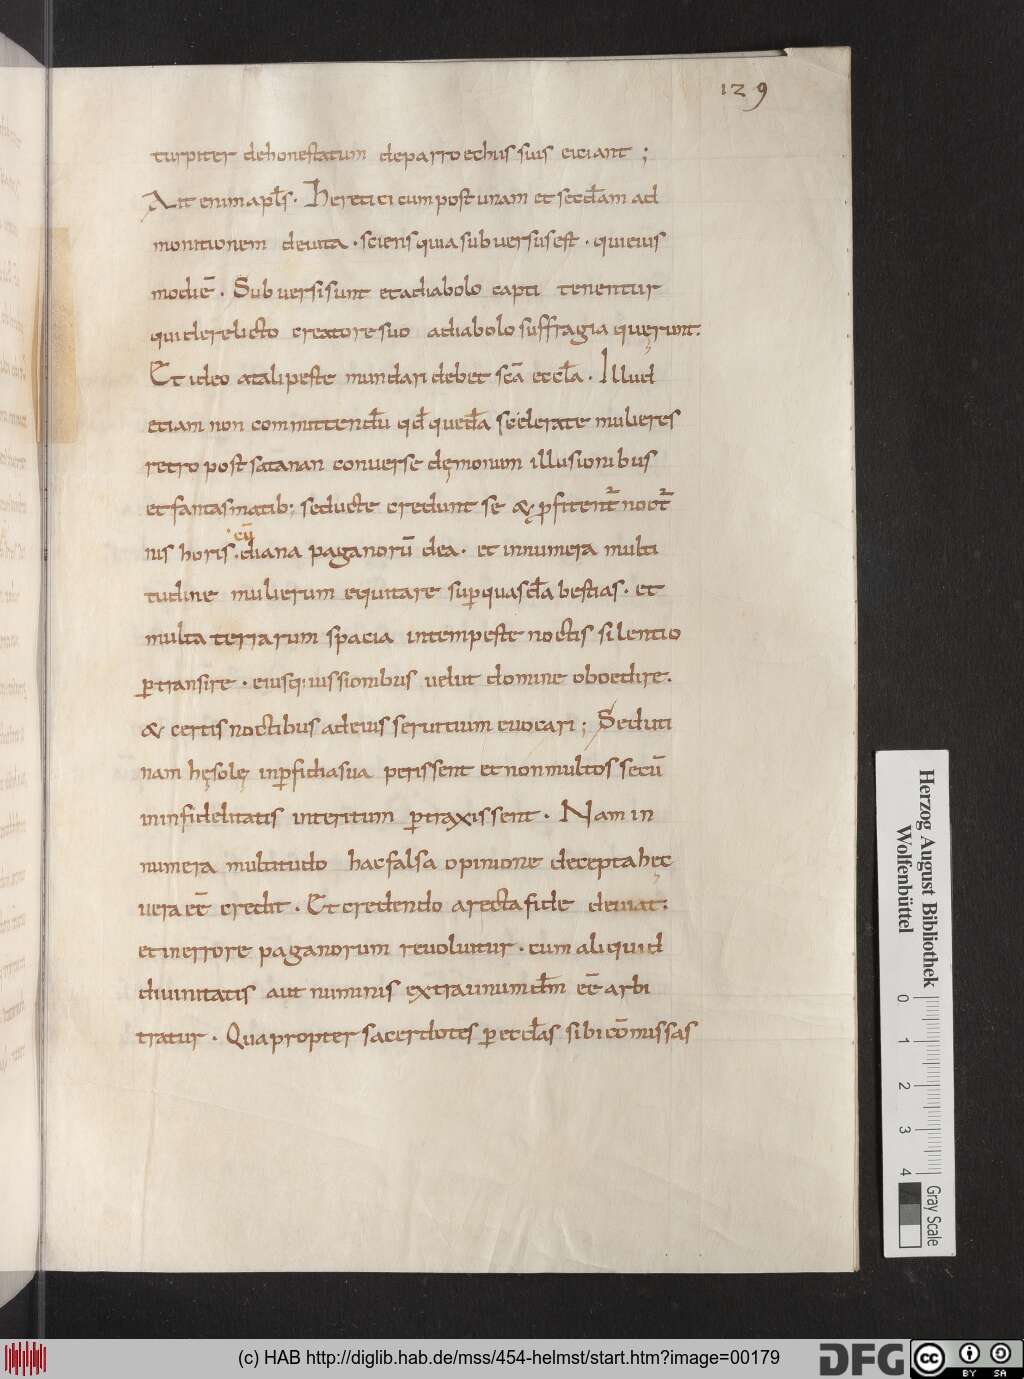 129
turpiter dehonestatum deparroechus suis eiciant ;
Ait enim apl̄s · Hereticicum post unam et secd̄am ad
monitionem deuita · sciens quia subuersus est · quieius
modiē · Subuersi sunt et adiabolo capti tenentur
qui derelicto creatore suo adiabolo suffragia quęrunt.
Et ideo atali peste mundari debet scā eccl̄a · Illud
etiam non committend̄u qd̄ qued̄a scelerate mulieres
retro post satanan converse dęmonum illusionibus
et fantasmatib; seducte credunt se & ꝓfitent̄ noct̄
nis horis · cū diana paganorū dea · et innumera multi
tudine mulierum equitare suꝑ quasd̄a bestias · et
multa terrarum spacia intempeste noctis silentio
ꝑtransire · eiusq; iussionibus uelut domine oboedire.
& certis noctibus adeius seruitium euocari ; Seduti
nam hęsolę inꝑfidia sua perissent et non multos secū
in infidelitatis interitum ꝑtraxissent · Nam in
numera multitudo hac falsa opinione decepta hęc
uera eē credit · Et credendo a recta fide deuiat.
et in errore paganorum reuoluitur · cum aliquid
diuinitatis aut numinis extra unum dm̄ eē arbi
tratur · Quapropter sacerdotes ꝑ eccl̄as sibi cōmissas
Herzog August Bibliothek
Wolfenbüttel
0 1 2 3 4
Gray Scale
(c) HAB http://diglib.hab.de/mss/454-helmst/start.htm?image=00179
DFG
cc BY SA